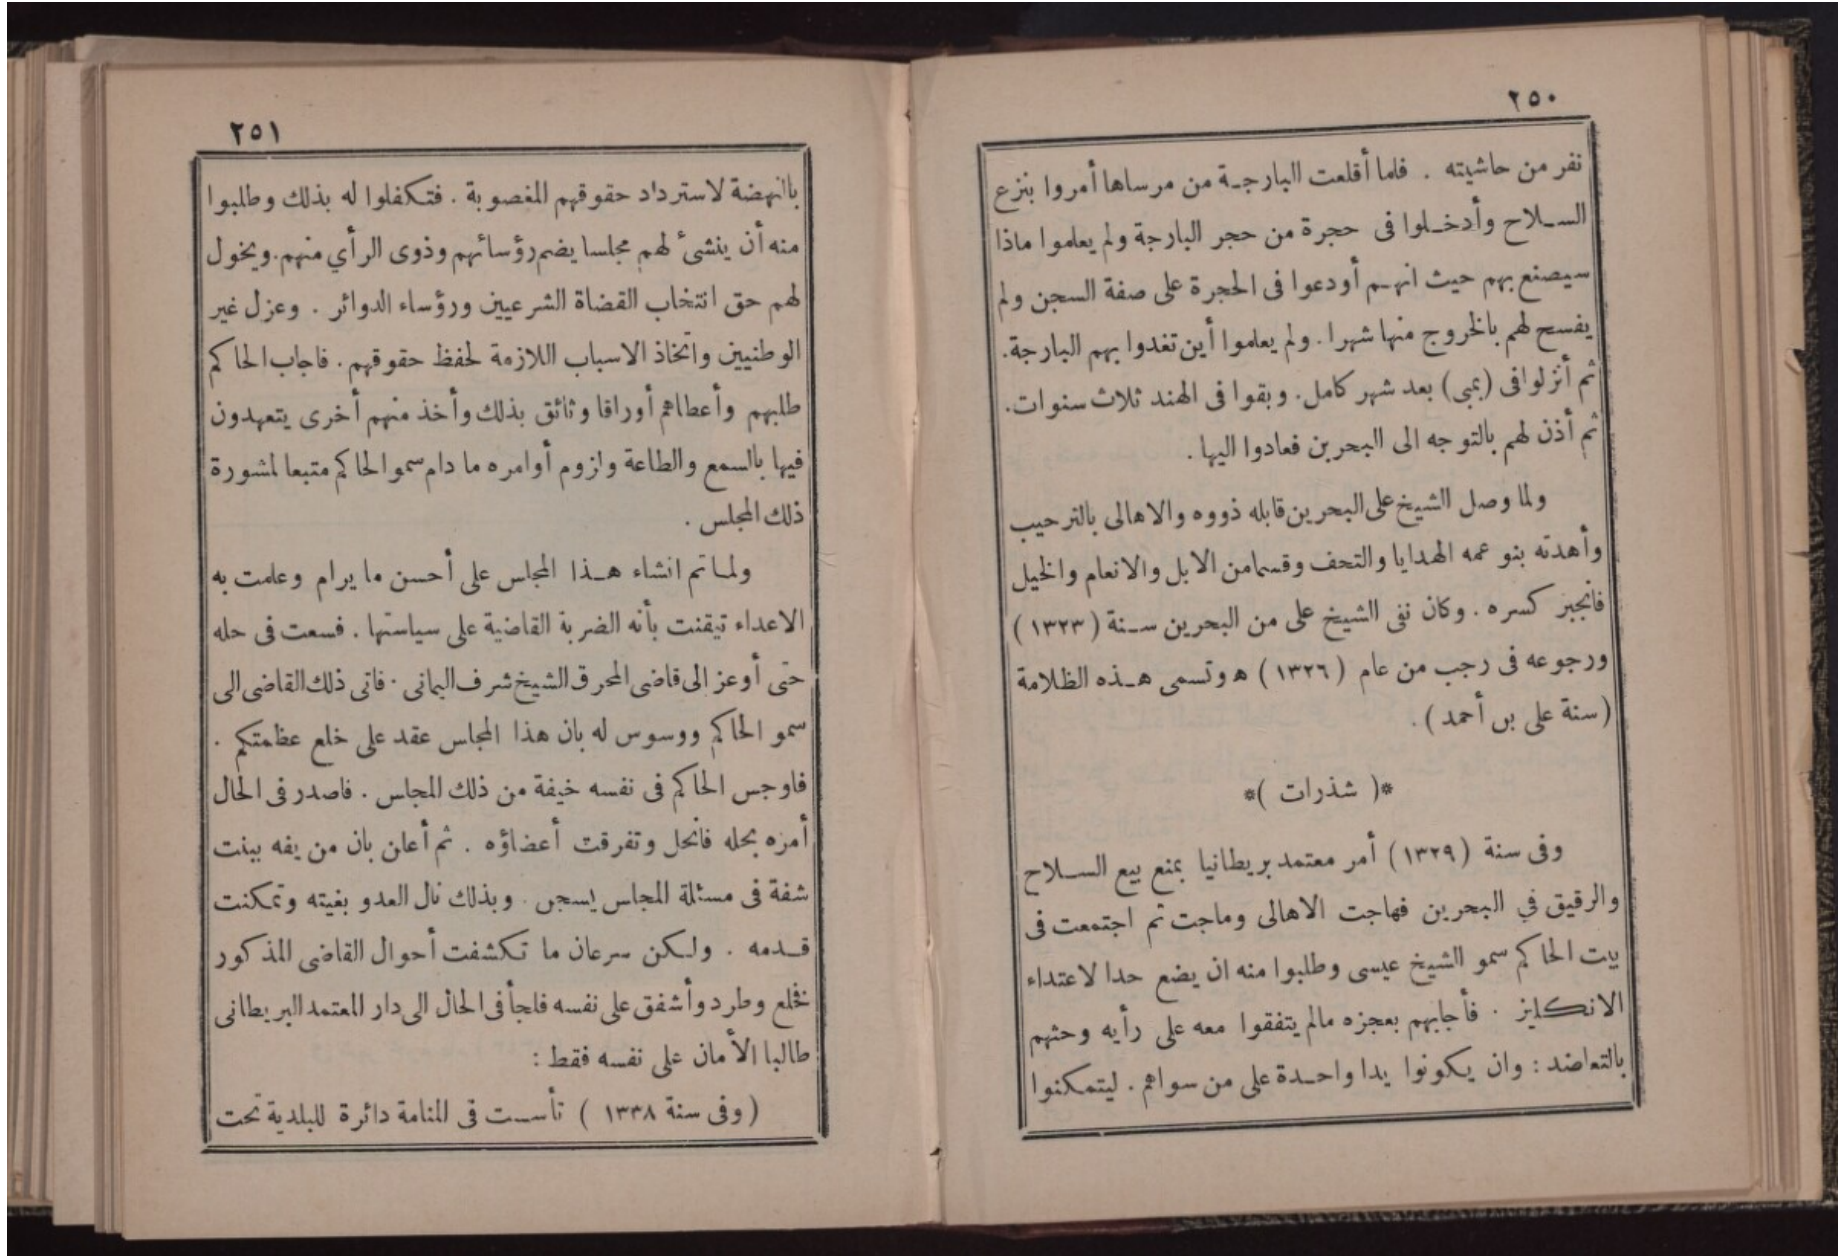 ٢٥٠
نفر من حاشيته . فلما أقلعت البارجة من مرساها أمروا بنزع
السلاح وأدخلوا فى حجرة من حجر البارجة ولم يعلموا ماذا
سيصنع بهم حيث انهم أودعوا فى الحجرة على صفة السجن ولم
يفسح لهم بالخروج منها شهرا . ولم يعلموا أين تغدوا بهم البارجة .
ثم أنزلوا فى (بمبى) بعد شهر كامل . وبقوا فى الهند ثلاث سنوات .
ثم أذن لهم بالتوجه الى البحرين فعادوا اليها .
ولما وصل الشيخ على البحرين قابله ذووه والاهالى بالترحيب
وأهدته بنو عمه الهدايا والتحف وقسما من الابل والانعام والخيل
فانجبر كسره . وكان نفى الشيخ على من البحرين سنة (١٣٢٣)
ورجوعه فى رجب من عام (١٣٢٦) ه وتسمى هذه الظلامة
(سنة على بن أحمد) .
*( شذرات )*
وفى سنة (١٣٢٩) أمر معتمد بريطانيا بمنع بيع السلاح
والرقيق في البحرين فهاجت الاهالى وماجت ثم اجتمعت فى
بيت الحاكم سمو الشيخ عيسى وطلبوا منه ان يضع حدا لاعتداء
الانكليز . فأجابهم بعجزه مالم يتفقوا معه على رأيه وحثهم
بالتعاضد : وان يكونوا يدا واحدة على من سواهم . ليتمكنوا
٢٥١
بالنهضة لاسترداد حقوقهم المغصوبة . فتكفلوا له بذلك وطلبوا
منه أن ينشئ لهم مجلسا يضم رؤسائهم وذوى الرأي منهم . ويخول
لهم حق انتخاب القضاة الشرعيين ورؤساء الدوائر . وعزل غير
الوطنيين واتخاذ الاسباب اللازمة لحفظ حقوقهم . فاجاب الحاكم
طلبهم وأعطاهم أوراقا وثائق بذلك وأخذ منهم أخرى يتعهدون
فيها بالسمع والطاعة ولزوم أوامره ما دام سمو الحاكم متبعا لمشورة
ذلك المجلس .
ولما تم انشاء هذا المجلس على أحسن ما يرام وعلمت به
الاعداء تيقنت بأنه الضربة القاضية على سياستها . فسعت فى حله
حتى أوعز الى قاضى المحرق الشيخ شرف اليمانى . فاتى ذلك القاضى الى
سمو الحاكم ووسوس له بان هذا المجلس عقد على خلع عظمتكم .
فاوجس الحاكم فى نفسه خيفة من ذلك المجلس . فاصدر فى الحال
أمره بحله فانحل وتفرقت أعضاؤه . ثم أعلن بان من يفه ببنت
شفة فى مسئلة المجلس يسجن . وبذلك نال العدو بغيته وتمكنت
قدمه . ولكن سرعان ما تكشفت أحوال القاضى المذكور
فخلع وطرد وأشفق على نفسه فلجأ فى الحال الى دار المعتمد البريطانى
طالبا الأمان على نفسه فقط :
(وفى سنة ١٣٣٨ ) تأسست فى المنامة دائرة للبلدية تحت